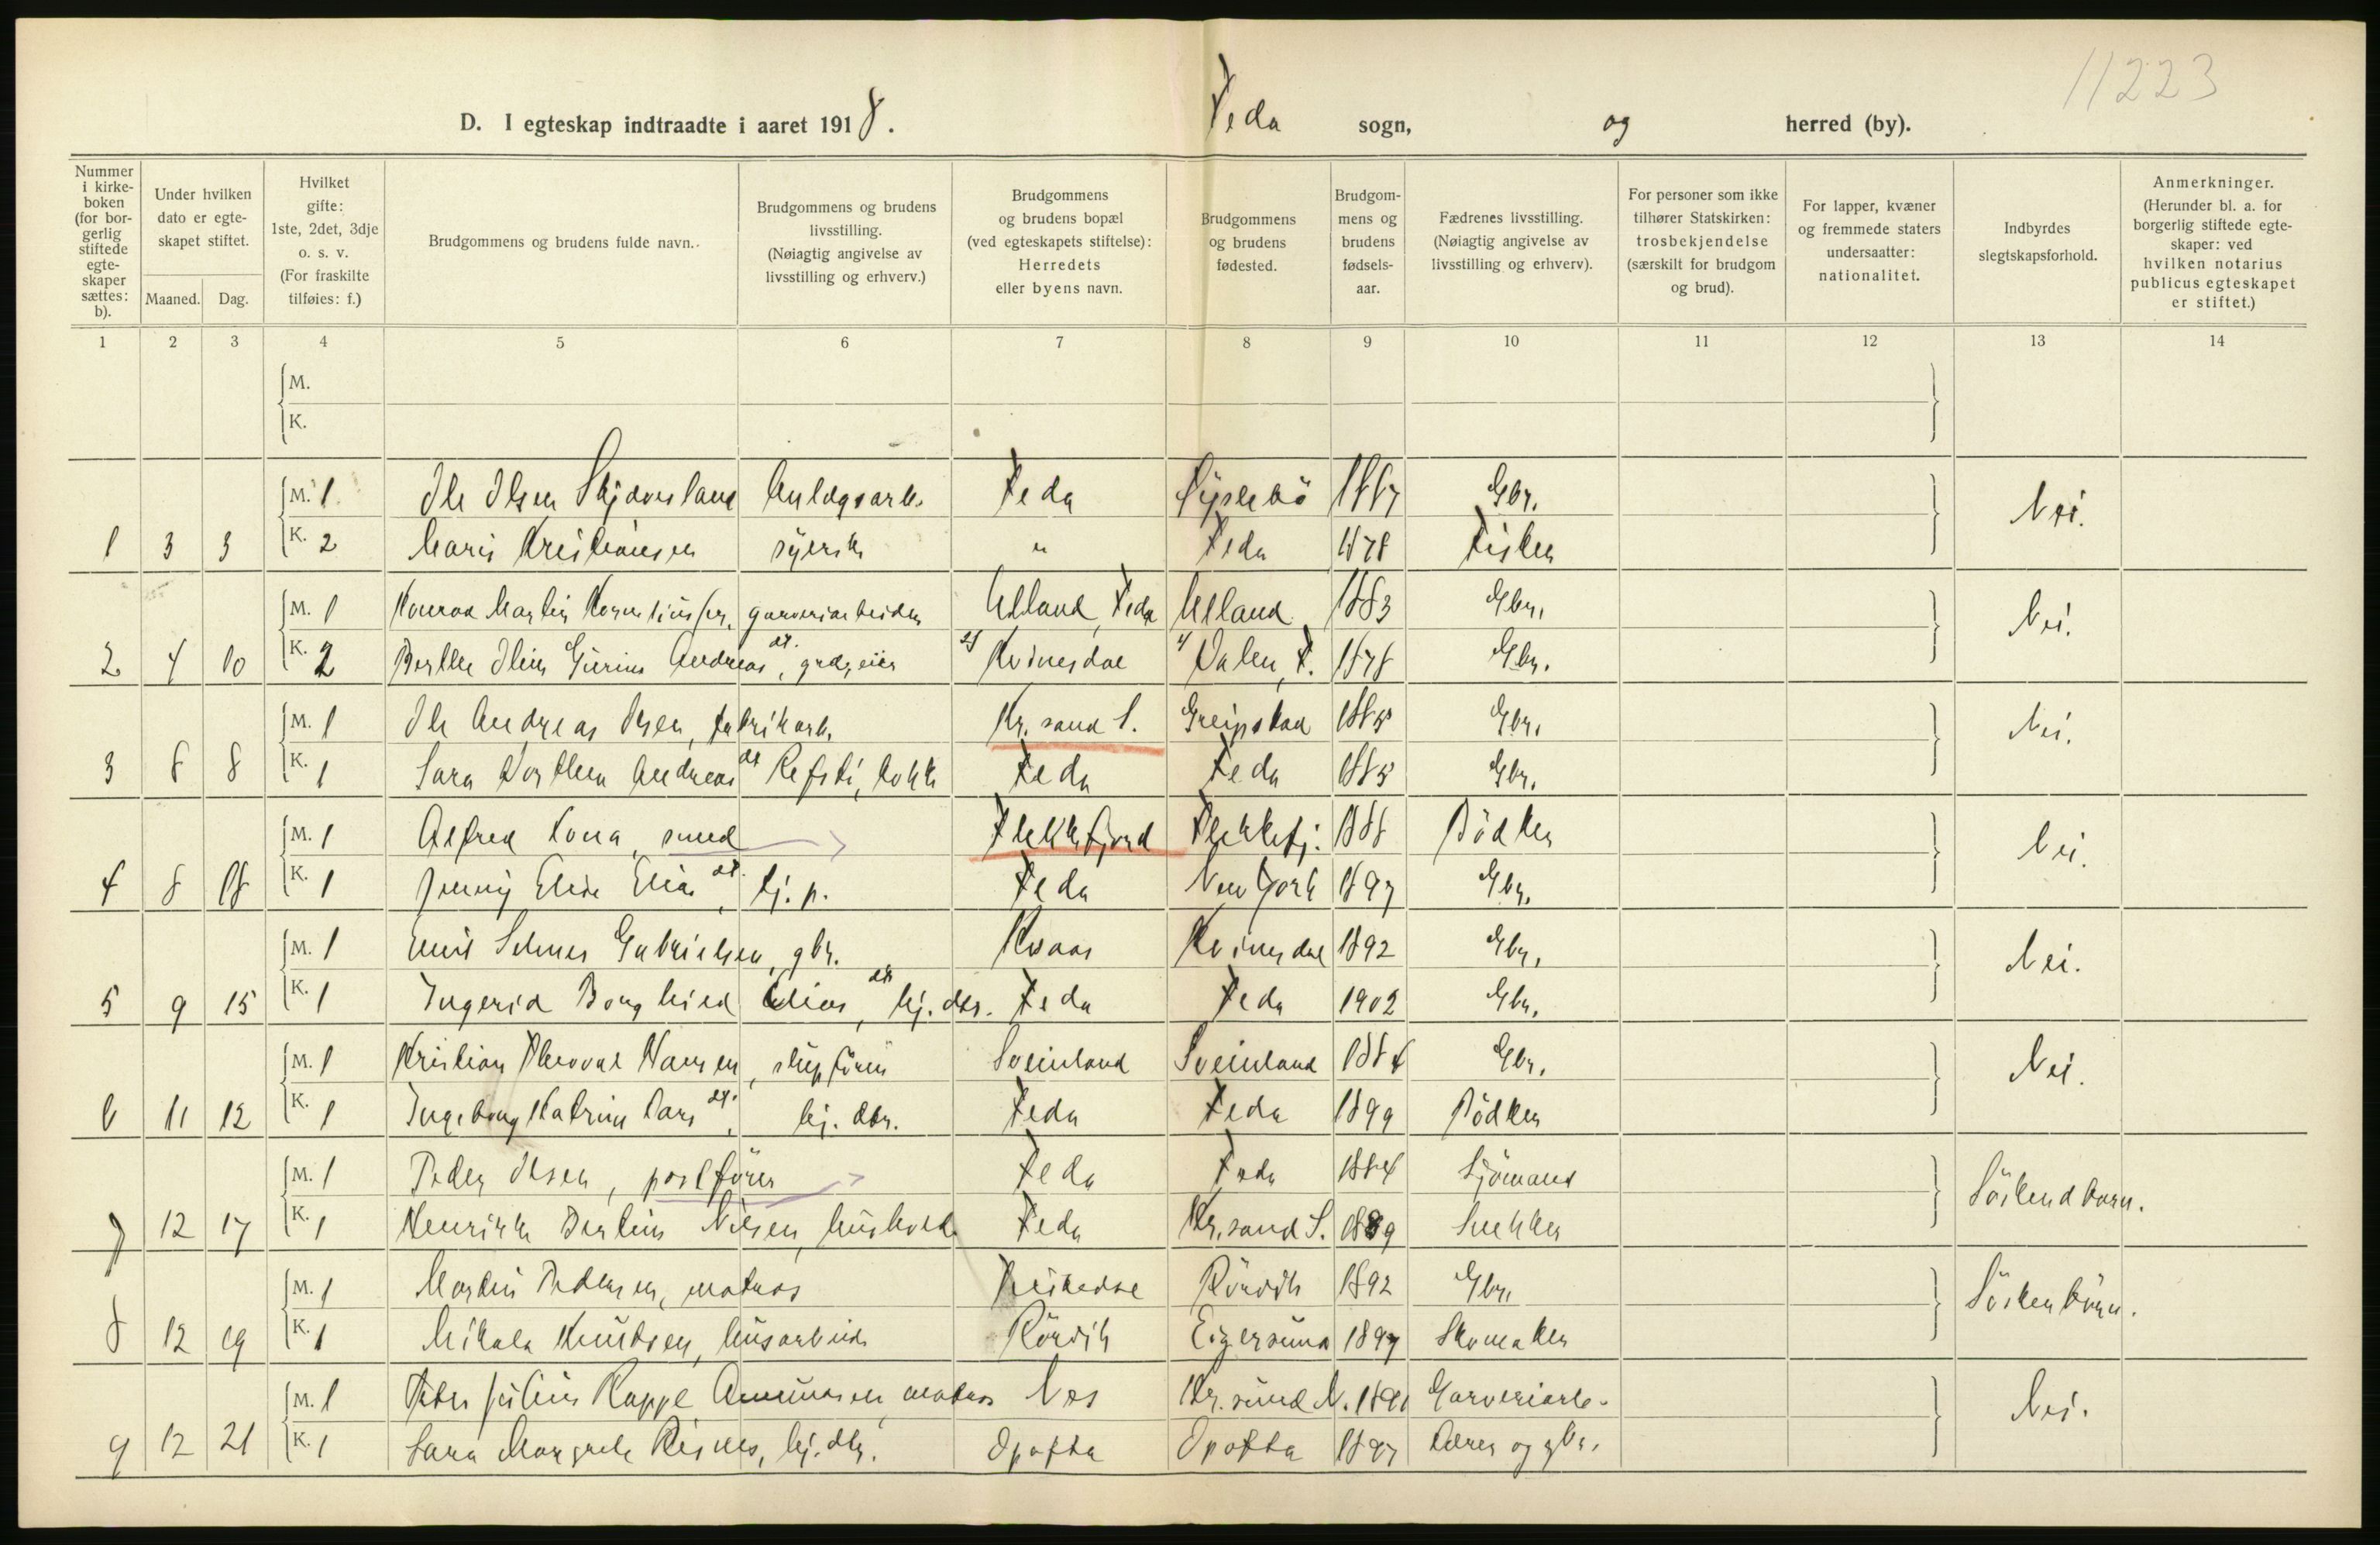 11223
D. I egteskap indtraadte i aaret 1918. Feda sogn, og herred (by).
Nummer i kirkeboken (for borgerlig stiftede egteskaper sættes: b).
Under hvilken dato er egteskapet stiftet.
Maaned. Dag.
Hvilket gifte: 1ste, 2det, 3dje o. s. v. (For fraskilte tilføies: f.)
Brudgommens og brudens fulde navn.
Brudgommens og brudens livsstilling. (Nøiagtig angivelse av livsstilling og erhverv.)
Brudgommens og brudens bopæl (ved egteskapets stiftelse): Herredets eller byens navn.
Brudgommens og brudens fødested.
Brudgommens og brudens fødselsaar.
Fædrenes livsstilling. (Nøiagtig angivelse av livsstilling og erhverv).
For personer som ikke tilhører Statskirken: trosbekjendelse (særskilt for brudgom og brud).
For lapper, kvæner og fremmede staters undersaatter: nationalitet.
Indbyrdes slegtskapsforhold.
Anmerkninger. (Herunder bl. a. for borgerlig stiftede egteskaper: ved hvilken notarius publicus egteskapet er stiftet.)
1 2 3 4 5 6 7 8 9 10 11 12 13 14
M.
K.
M. 1 Ole Olsen Anlægsarb. Feda 1887 Gbr. Nei.
1 3 3 K. 2 Maria Kristiansen syerske " Feda 1878 Fisker
M. 1 Konrad Martin Korneliussen, garveriarbeider Utland, Feda Utland 1883 Gbr. Nei.
2 4 10 K. 2 Berthe Andreas dt., grdeier Kvinesdal F. 1878 Gbr.
M. 1 Ole Andreas Olsen, fabrikarb. Kr.sand S. Greipstad 1885 Gbr. Nei.
3 8 8 K. 1 Sara Dorthea Andreas dt Refsti, kokke Feda Feda 1885 Gbr.
M. 1 Alfred Lona, smed Flekkefjord Flekkefj. 1888 Bödker Nei.
4 8 18 K. 1 Jenny Elise Elias dt., tj. p. Feda New York 1897 Gbr.
M. 1 Emil Selmer Gabrielsen, gbr. Kvaas Kvinesdal 1892 Gbr. Nei.
5 9 15 K. 1 Ingerid Borghild Elias dt, hj. dtr. Feda Feda 1902 Gbr.
M. 1 Kristian Thorval Hansen, skipförer Sveinland Sveinland 1884 Gbr. Nei.
6 11 12 K. 1 Ingeborg Katrine Lars dt., hj. dtr. Feda Feda 1899 Bödker
M. 1 Peder Olsen, postförer Feda Feda 1884 Sjömand Söskendbarn.
7 12 17 K. 1 Henrikke Bertine Nilsen, hushold. Feda Kr.sand S. 1889 Snekker
M. 1 Martin Pedersen, matros Rörvik 1892 Gbr. Söskenbörn.
8 12 19 K. 1 Mikala Knudsen, husarbeide Rörvik Egersund 1897 Skomaker
M. 1 Peter Julius Rappe Amundsen, matros Nes Kr.sund N. 1891 Garveriarb. Nei.
9 12 21 K. 1 Sara Margrete Risnes, hj. dtr. Opofte Opofte 1897 Lærer og gbr.